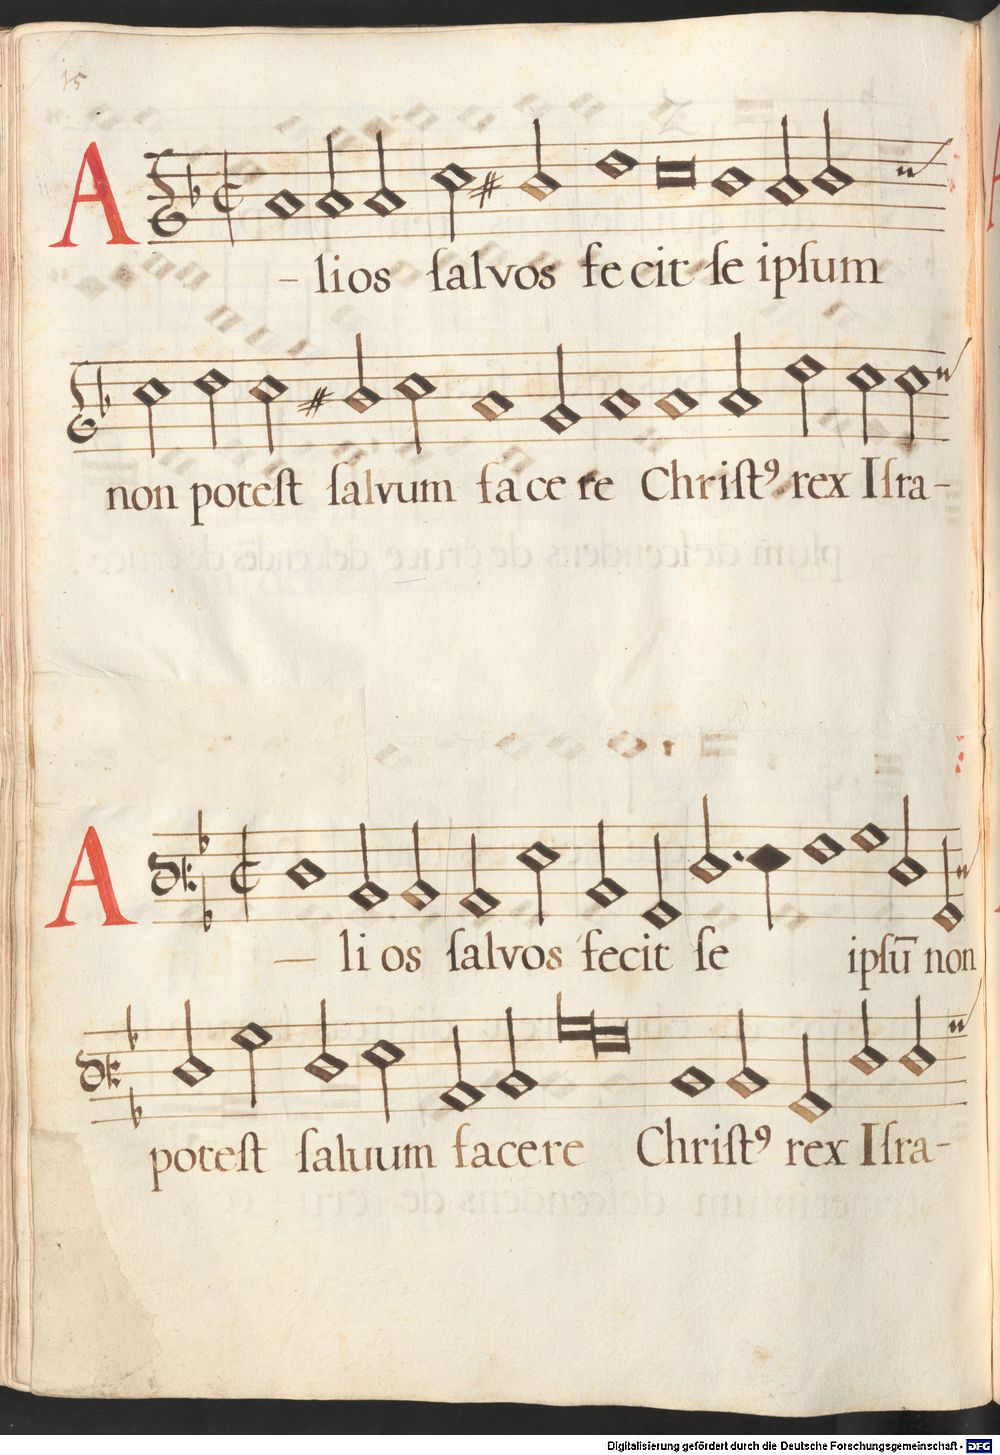 15
A
– lios ſalvos fecit ſe ipſum
non poteſt ſalvum facere Chriſtꝰ rex Iſra-
A
– lios ſalvos fecit ſe ipſū non
poteſt ſaluum facere Chriſtꝰ rex Iſra-
Digitalisierung gefördert durch die Deutsche Forschungsgemeinschaft - DFG